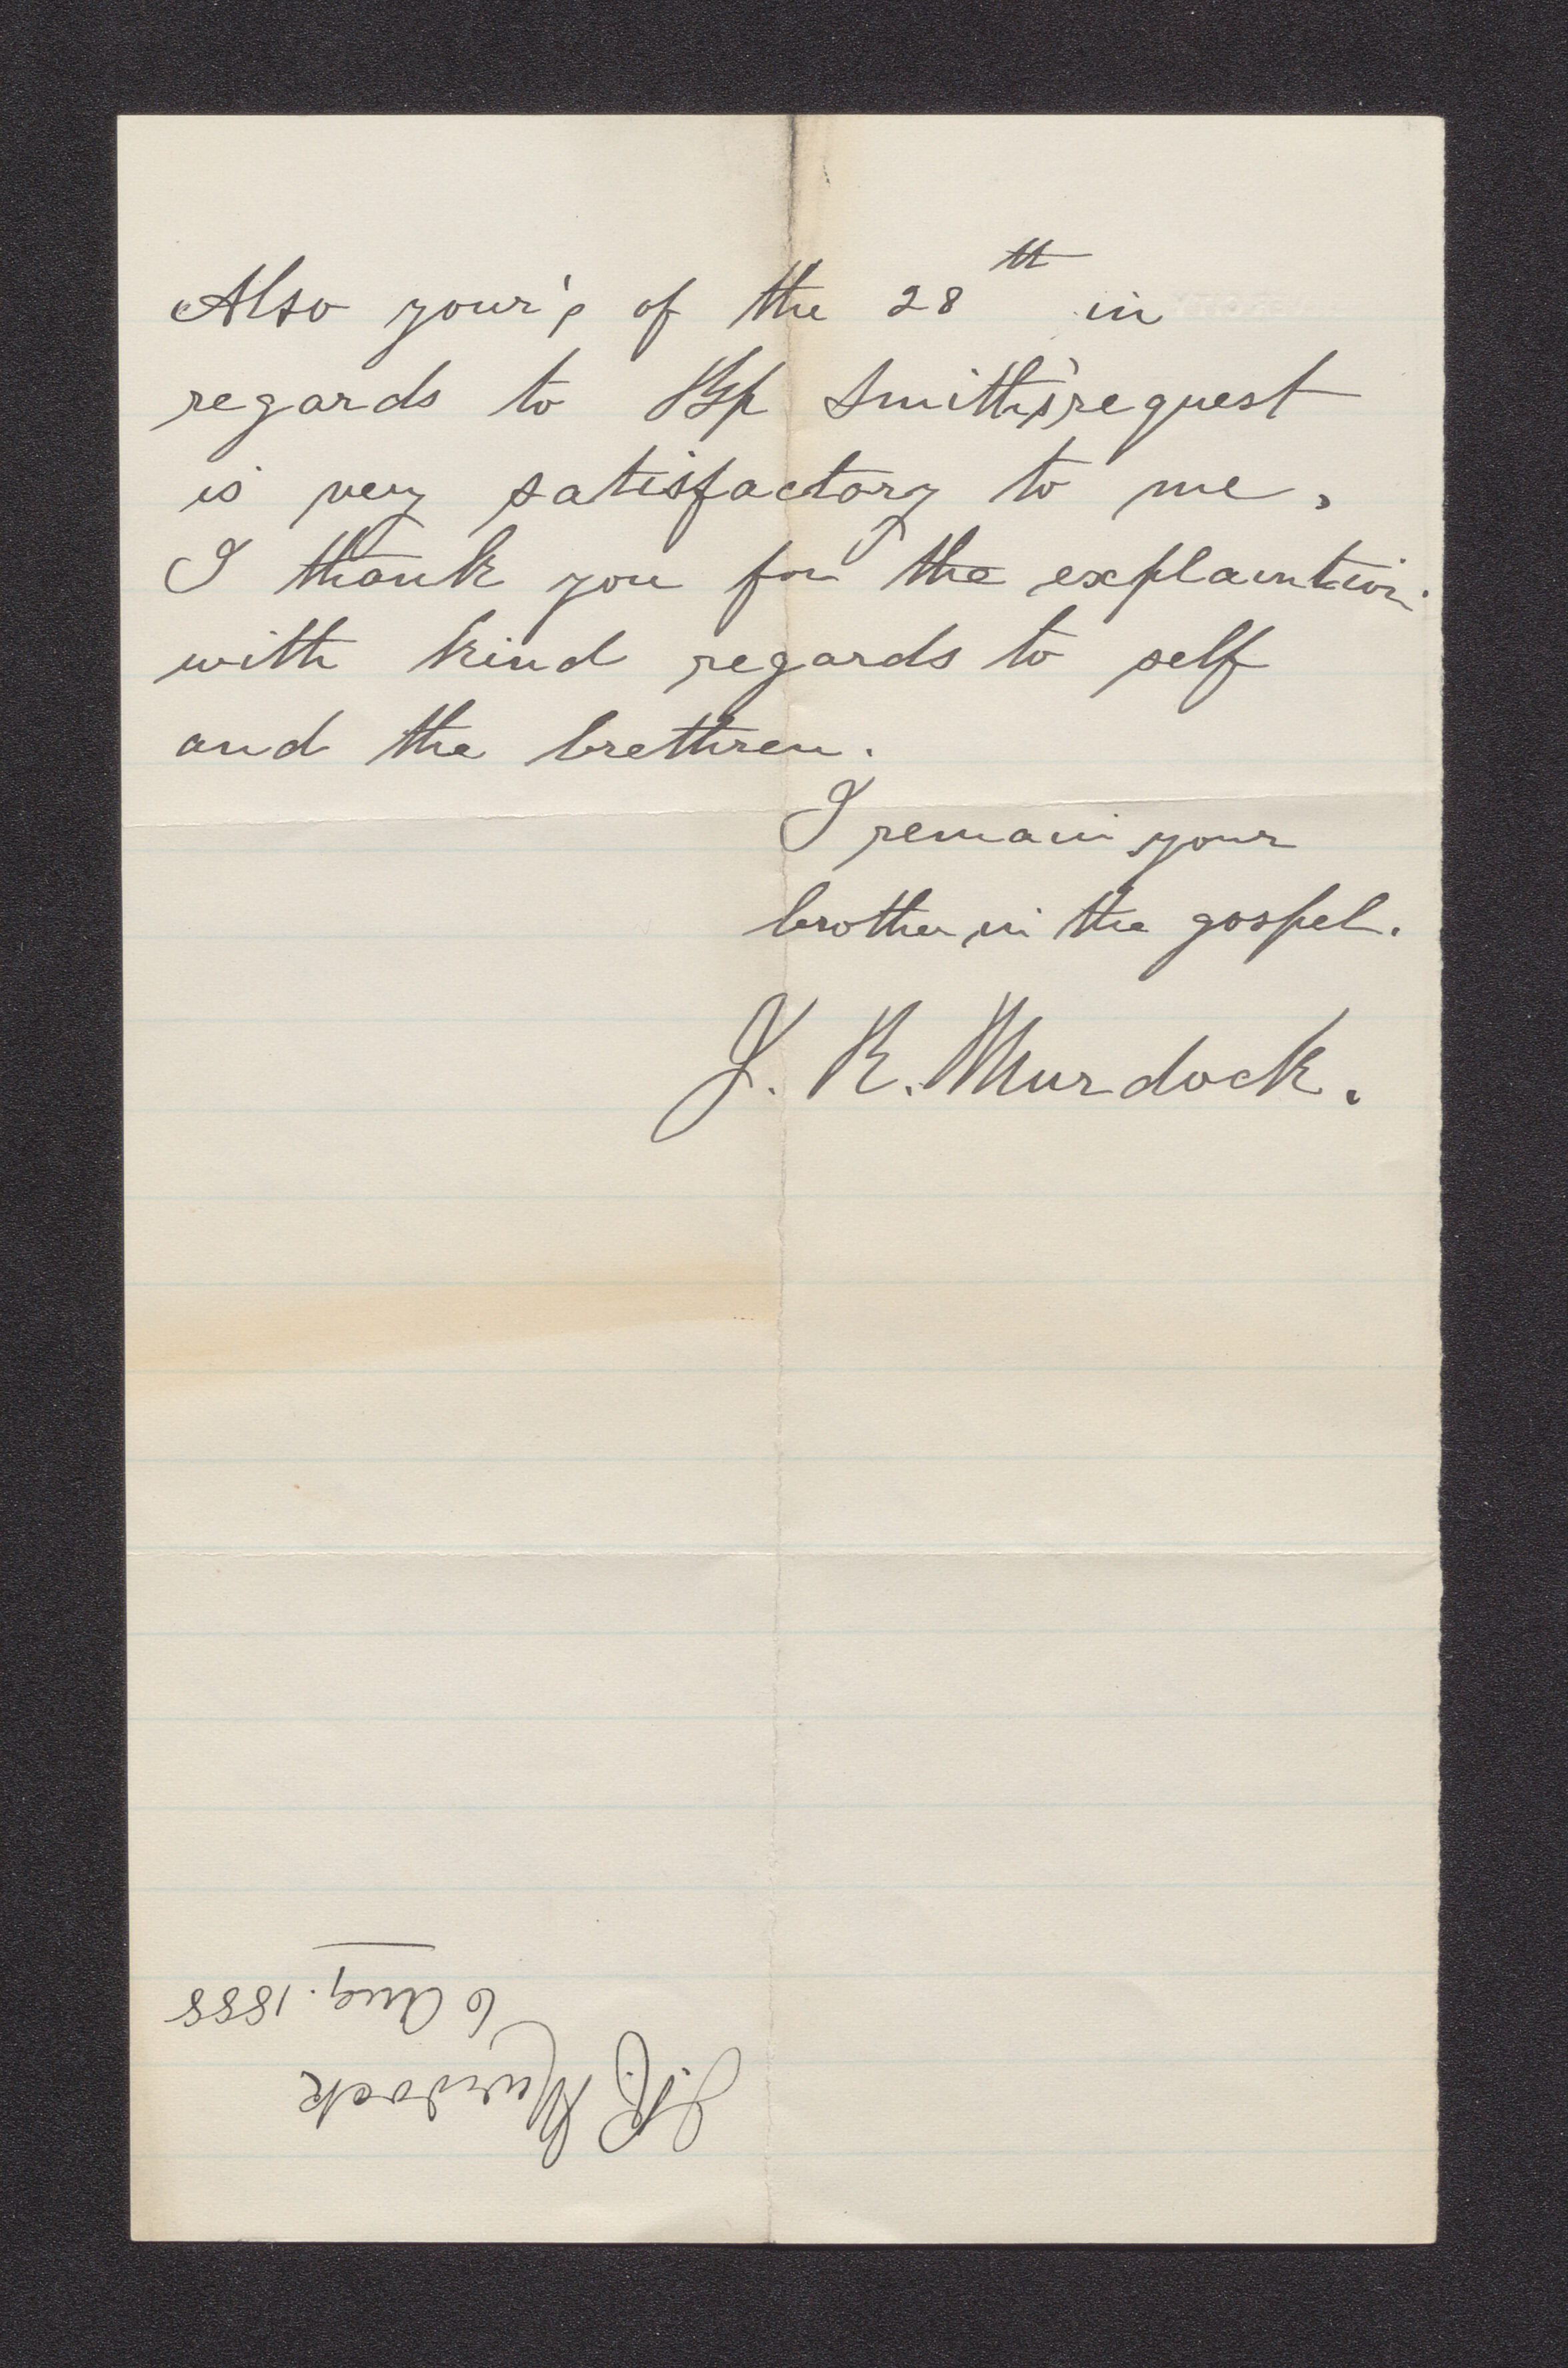 Also your's of the 28th in
regards to Bp Smith's request
is very satisfactory to me,
I thank you for the explaintion.
with kind regards to self
and the brethren.
I remain your
brother in the gospel.
J. R. Murdock.
J. R. Murdock
6 Aug. 1888